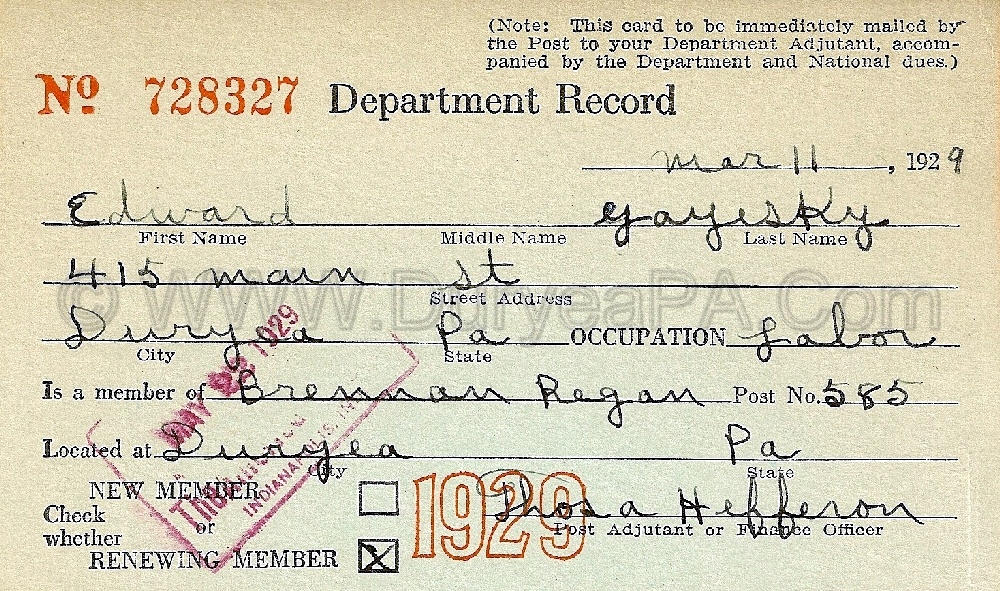 (Note: This card to be immediately mailed by
the Post to your Department Adjutant, accom-
panied by the Department and National dues.)
No 728327 Department Record
Mar 11, 1929
Edward Yayesky
First Name Middle Name Last Name
415 main st
Street Address
© WWW.DuryeaPA.Com
Duryea Pa OCCUPATION Labor
City State
MAY 1929
Is a member of Brennan Regan Post No. 585
Located at Duryea Pa
City State
INDIANAPOLIS, IN
NEW MEMBER
Check whether or
1929
Thos a Hefferon
Post Adjutant or Finance Officer
RENEWING MEMBER X